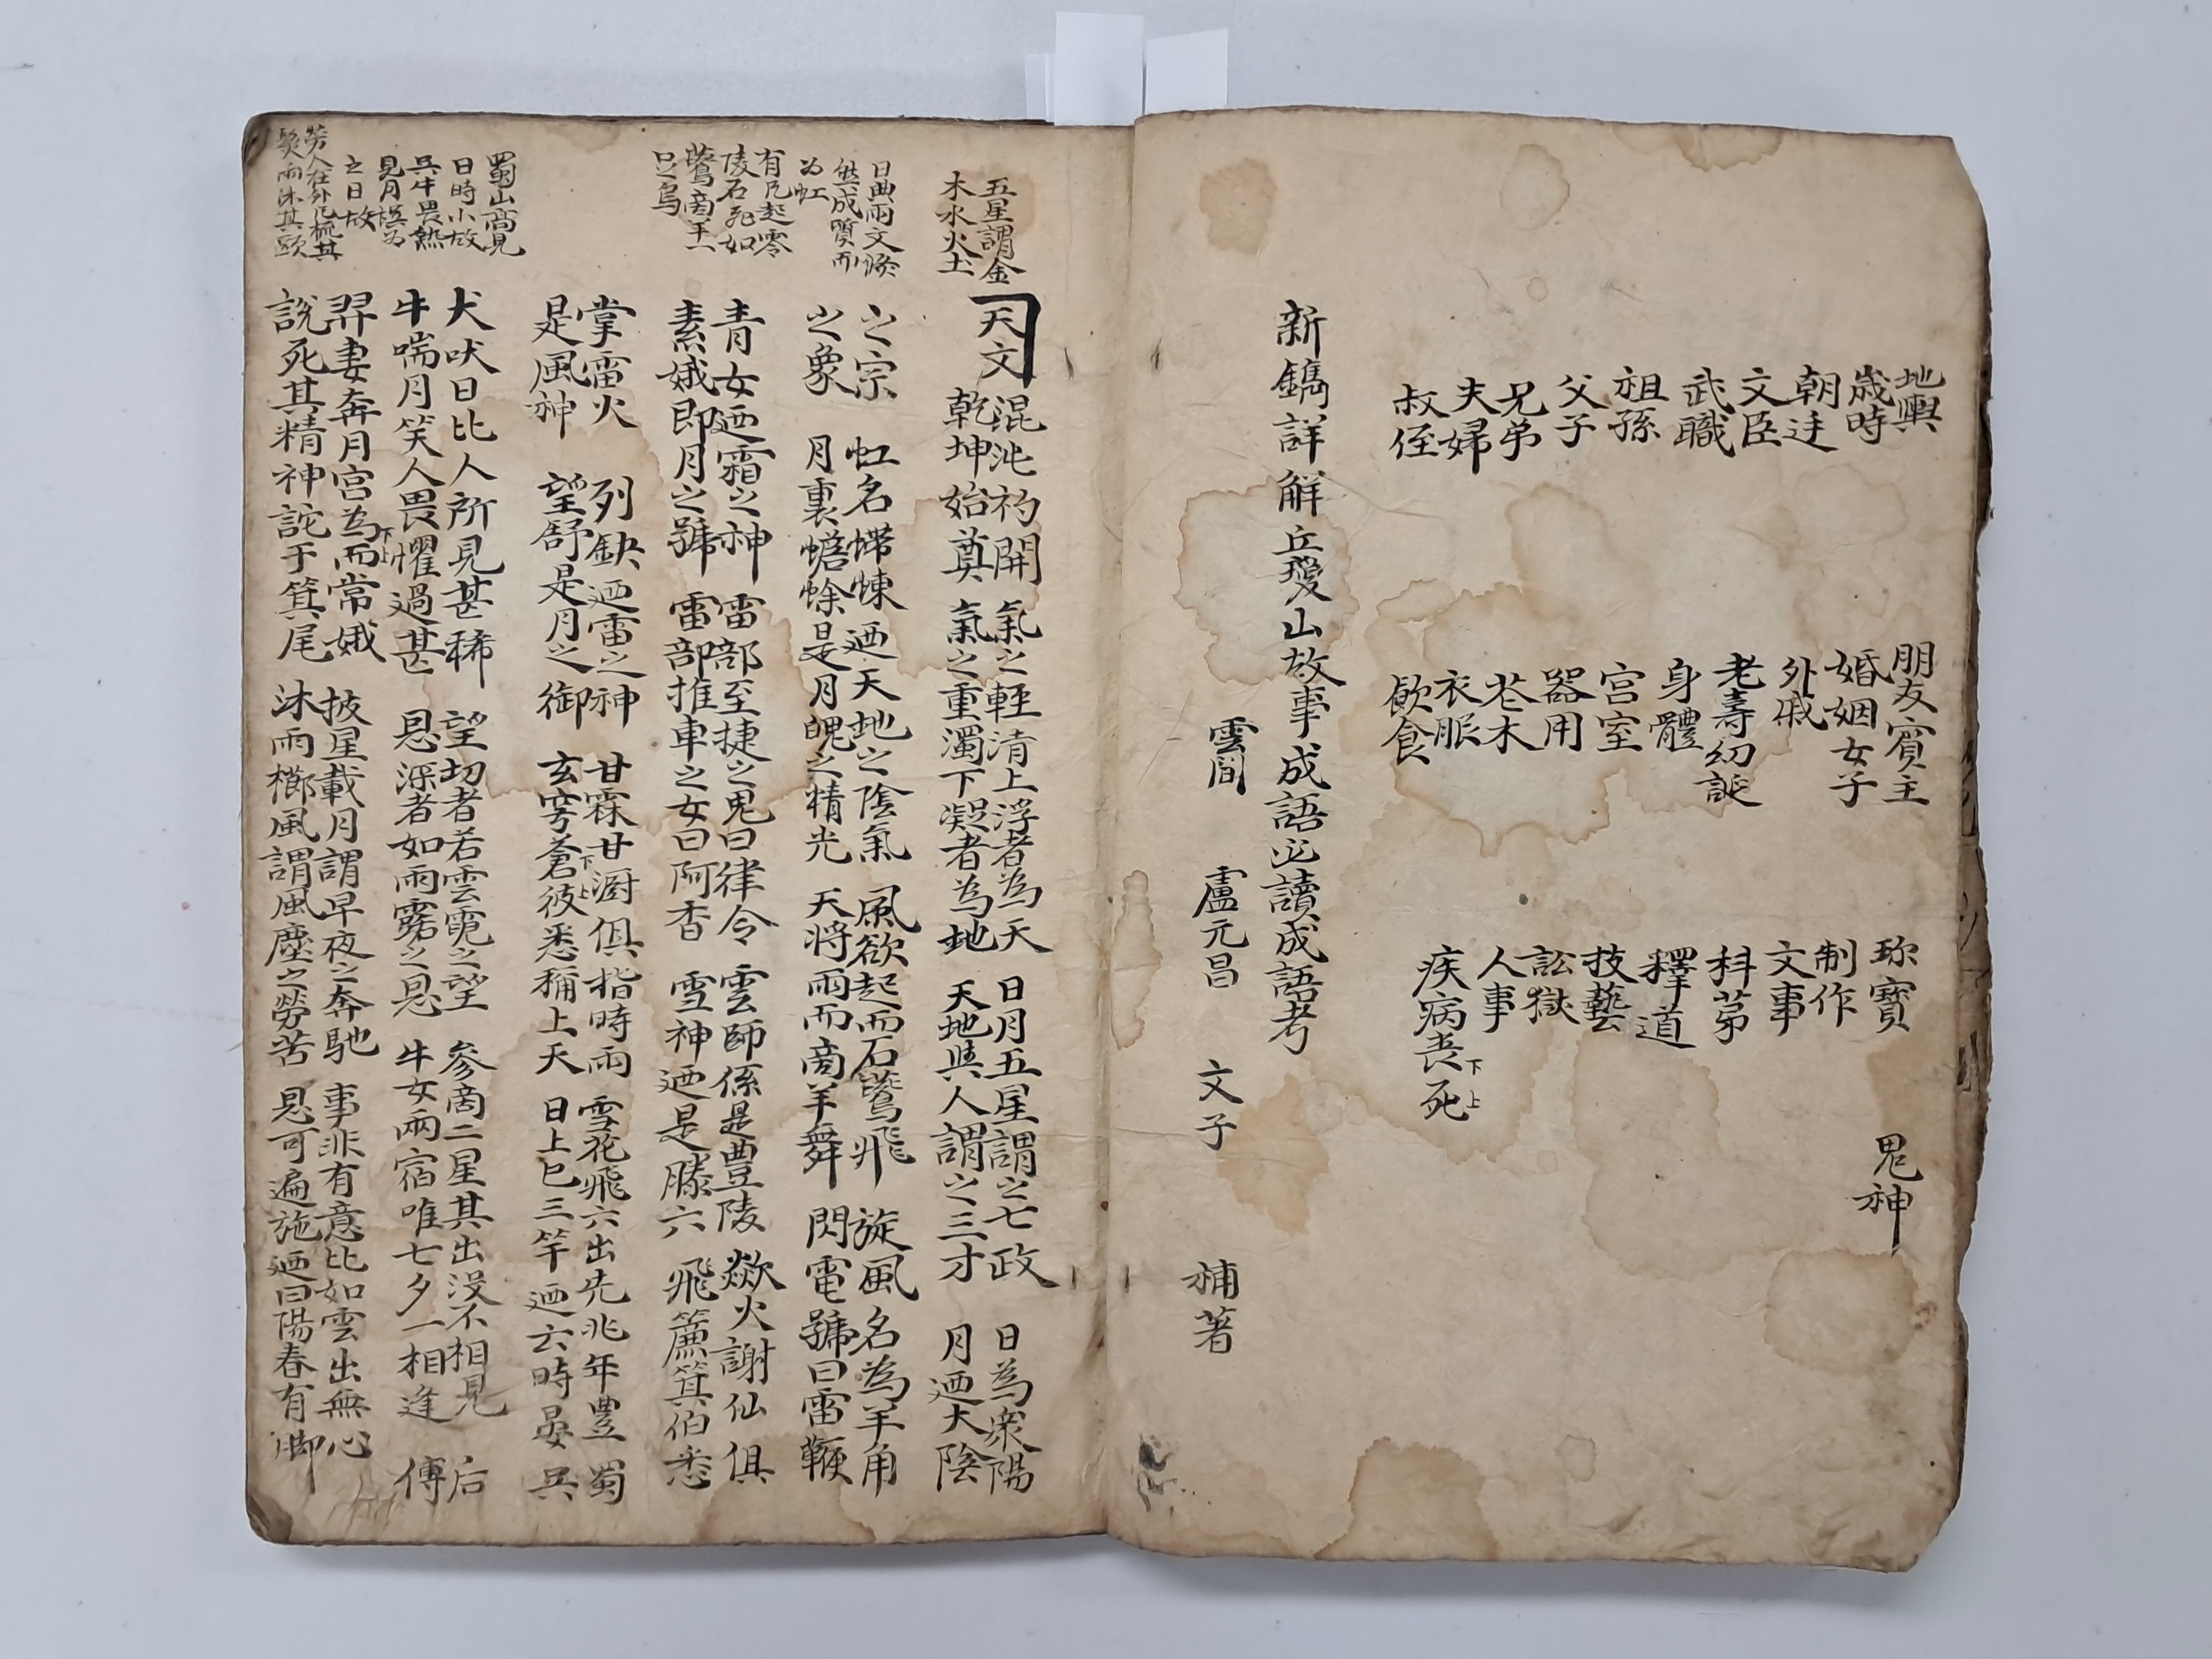 地輿
歲時
朝廷
文臣
武職
祖孫
父子
兄弟
夫婦
叔侄
朋友賓主
婚姻女子
外戚
老壽幼誕
身體
宮室
器用
花木
衣服
飲食
珎寶
制作
文事
科苐
釋道
技藝
訟獄
人事
疾病丧死
下上
鬼神
新鐫詳解丘瓊山故事成語必讀成語考
雲間 盧元昌 文子 補著
五星謂金
木水火土
天文
混沌初開 氣之輕清上浮者為天 日月五星謂之七政 日為衆陽
乾坤始奠 氣之重濁下凝者為地 天地與人謂之三才 月廼大陰
日與雨交倐
然成質而
为虹
之宗 虹名螮蝀廼天地之陰氣 風欲起而石鷰飛 旋風名為羊角
之象 月裏蟾蜍是月魄之精光 天将雨而商羊舞 閃電號曰雷鞭
有凡起零
陵石飛如
鷰商羊一
足鳥
青女廼霜之神 雷部至捷之鬼曰律令 雲師係是豊陵 歘火謝仙俱
素娥即月之號 雷部推車之女曰阿香 雪神廼是滕六 飛簾箕伯悉
掌雷火 列缺廼雷之神 甘霖甘澍俱指時雨 雪花飛六出先兆年豊 蜀
是風神 望舒是月之御 玄穹蒼彼悉稱上天 日上巳三竿廼云時晏 吳
下上
蜀山高見
日時小故
吳牛畏熱
見月誤为
之日故
犬吠日比人所見甚稀 望切者若雲霓之望 参商二星其出没不相見 后
牛喘月笑人畏懼過甚 恩深者如雨露之恩 牛女兩宿唯七夕一相逢 傅
下上
勞人在外風梳其
髮雨沐其頭
羿妻奔月宮為而常娥 披星載月謂早夜之奔馳 事非有意比如雲出無心
說死其精神詫于箕尾 沐雨櫛風謂風塵之勞苦 恩可遍施廼曰陽春有脚